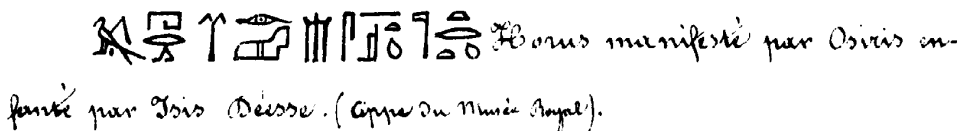 Horus manifesté par Osiris en-
fanté par Isis Déesse. (Cippe du Musée Royal).